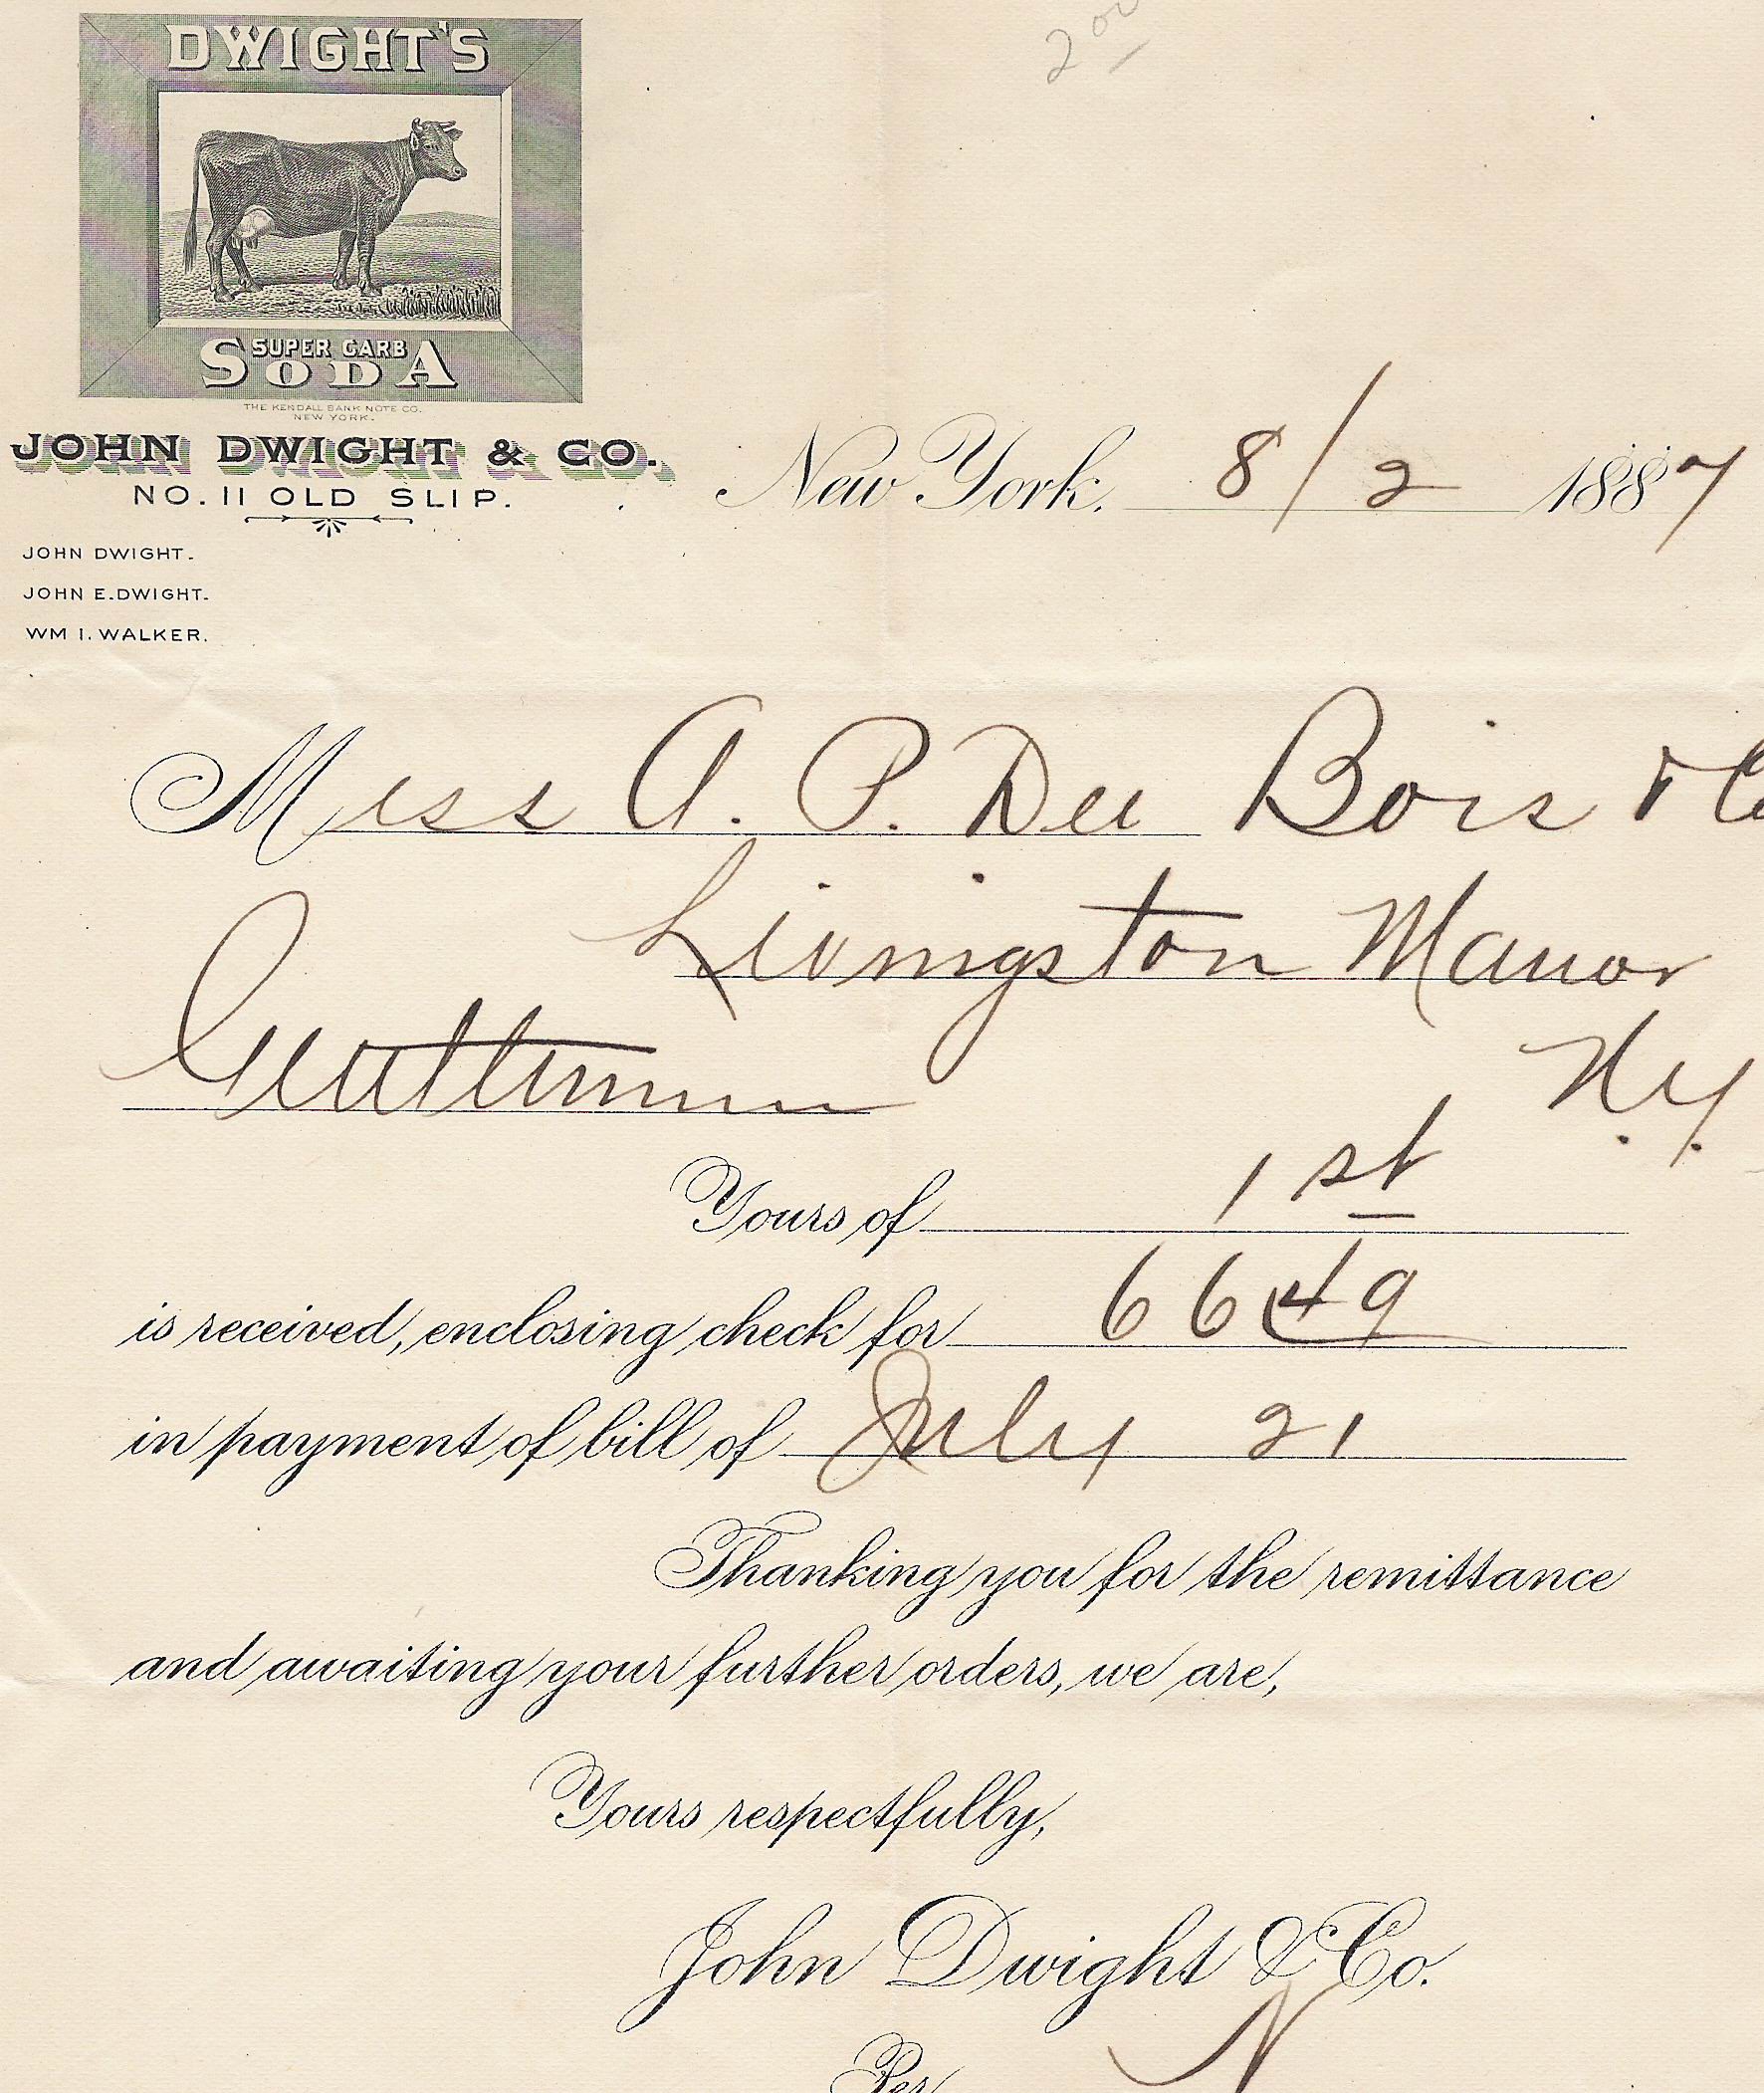 2 00
DWIGHT'S
SUPER CARB
SODA
THE KENDALL BANK NOTE CO.
NEW YORK.
JOHN DWIGHT & CO.
NO. 11 OLD SLIP.
New York. 8/2 1887
JOHN DWIGHT.
JOHN E. DWIGHT.
WM I. WALKER.
Mess A. P. Du Bois & Co
Livingston Manor
N.Y.
Gentlemen
Yours of 1st
is received, enclosing check for 66 49
in payment of bill of July 21
Thanking you for the remittance
and awaiting your further orders, we are,
Yours respectfully,
John Dwight & Co.
Per N